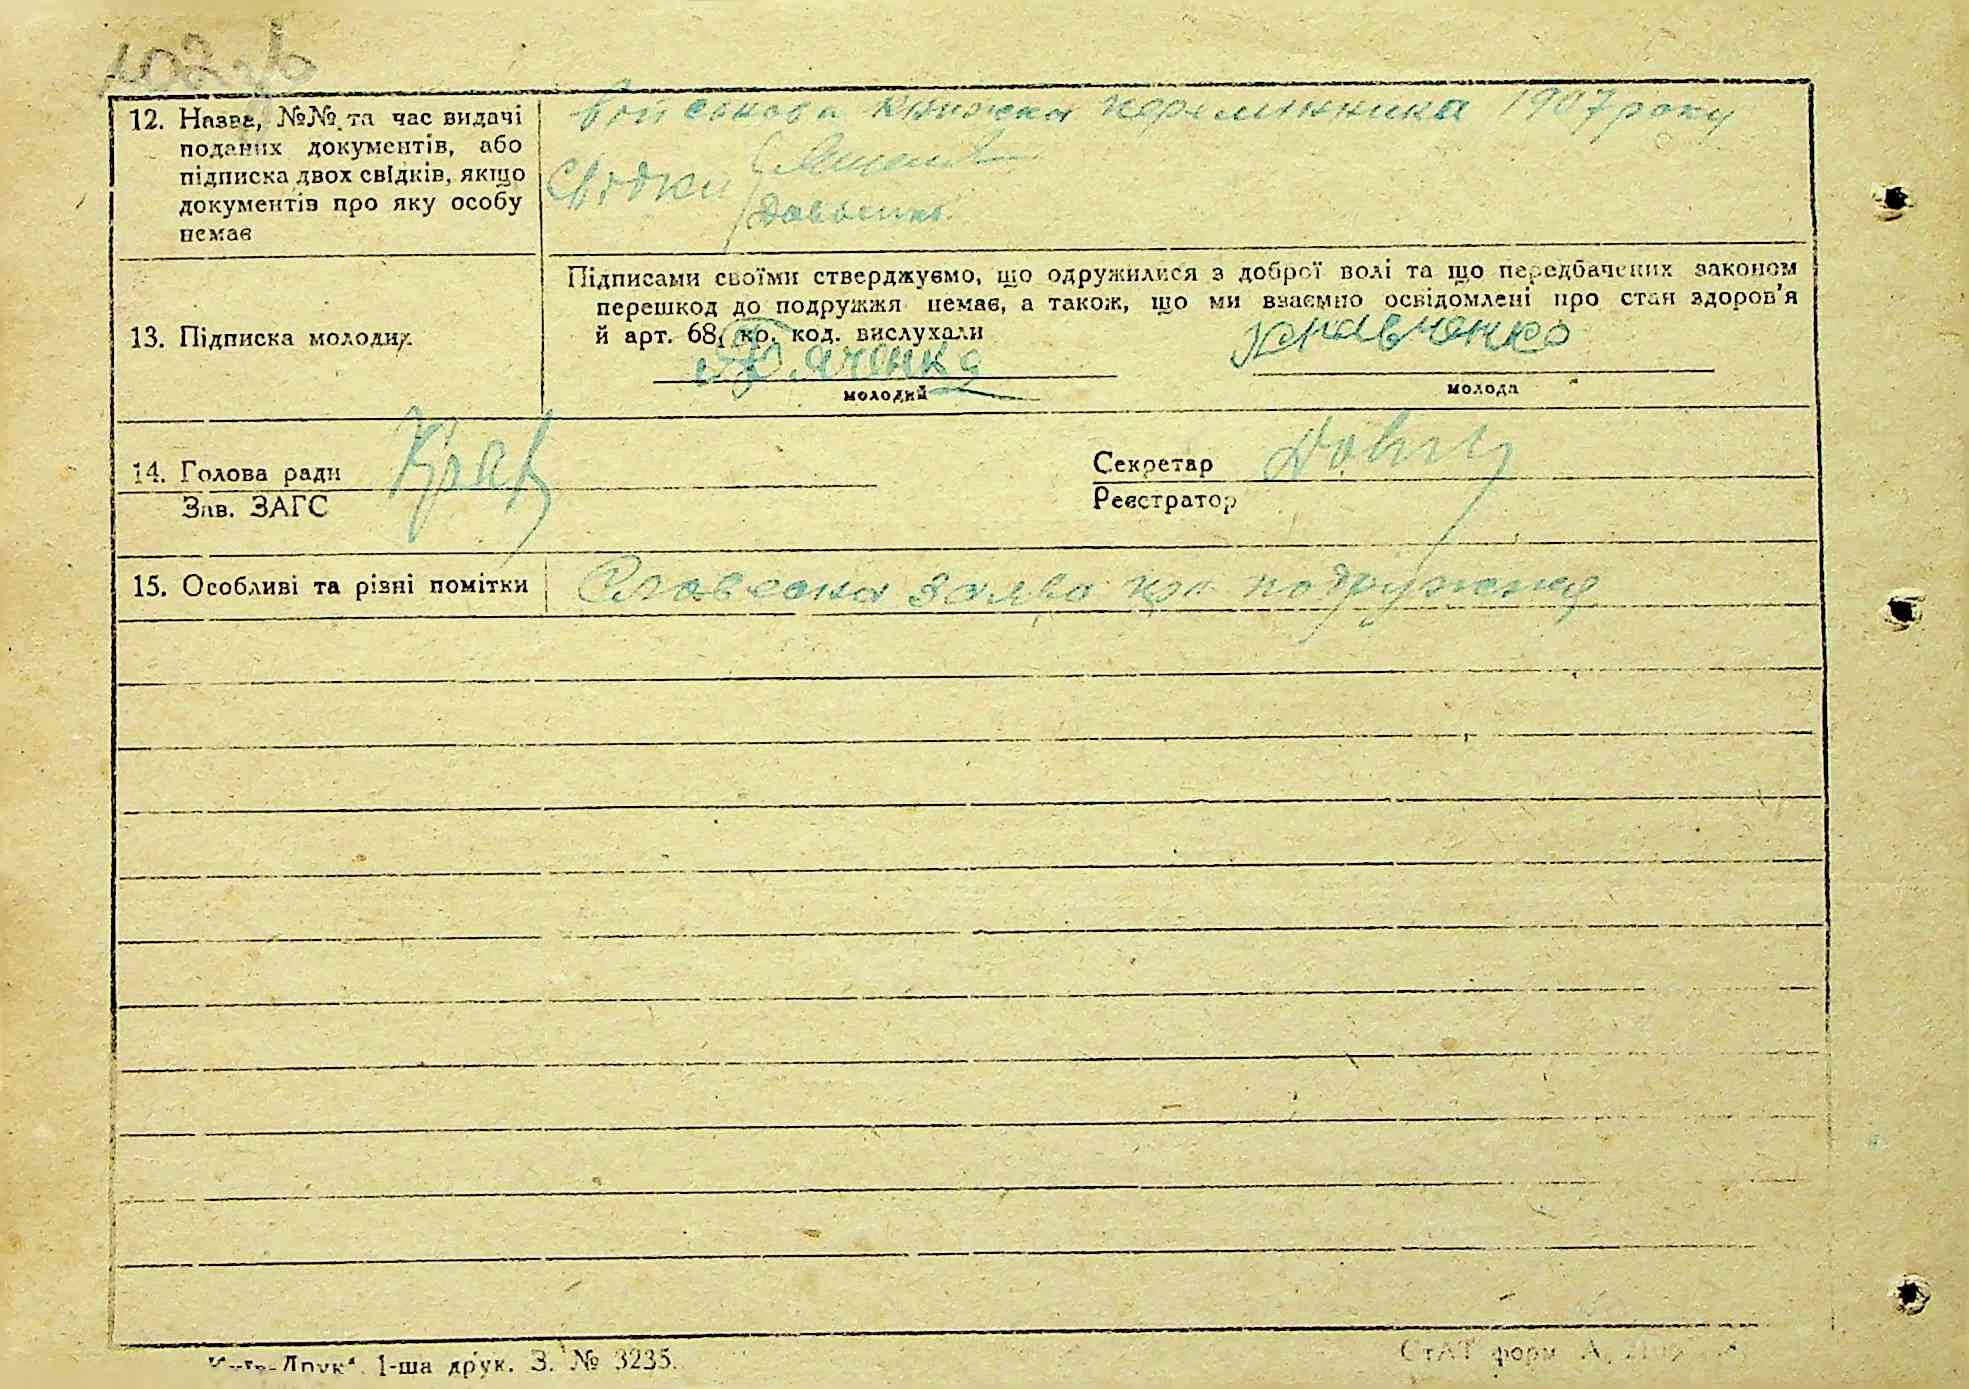 12. Назва, №№ та час видачі
поданих документів, або
підписка двох свідків, якщо
документів про яку особу
немає
Військова книжка перемінника 1907 року
Свідки
13. Підписка молодих
Підписами своїми стверджуємо, що одружилися з доброї волі та що передбачених законом
перешкод до подружжя немає, а також, що ми взаємно освідомлені про стан здоров'я
й арт. 68, кр. код. вислухали
Дяченко
Кравченко
молодий
молода
14. Голова ради
Крав
Секретар
Зав. ЗАГС
Реєстратор
15. Особливі та різні помітки
Словесна заява про подружжя
Друк". 1-ша друк. З. № 3235.
СтАТ форм А,